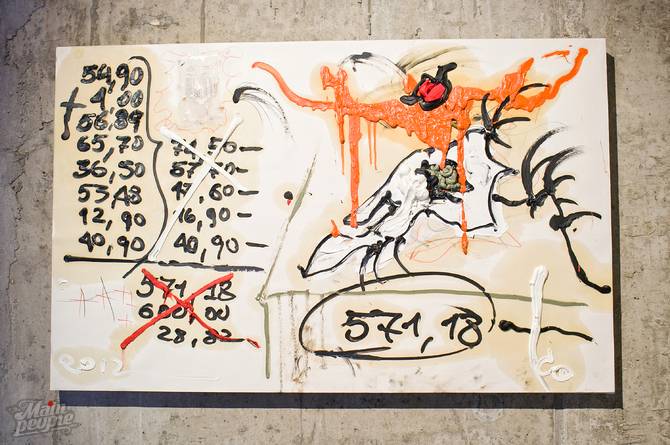 54,90
+ 1,00
56,89
65,70
36,50
53,48
12,90
40,90
57,40-
17,60-
16,90-
40,90-
571,18
600,00
28,82
571,18
2012
Main
people